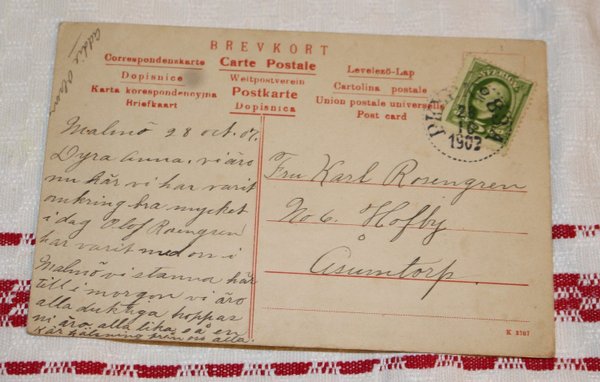 BREVKORT
Correspondenskarte Carte Postale Levelező-Lap
Dopisnice Weltpostverein Cartolina postale
Karta korespondencyjna Postkarte Union postale universelle
Briefkaart Dopisnica Post card
SVERIGE
1907
Malmö 28 oct. 07.
Dyra Anna, vi äro
nu här vi har varit
omkring bra mycket
i dag Olof Rosengren
har varit med om i
Malmö vi stanna här
till i morgon vi äro
alla duktiga hoppas
ni äro alla lika, så en
kär hälsning från oss alla.
Fru Karl Rosengren
No 6. Hofby
Åsumtorp.
K 2707